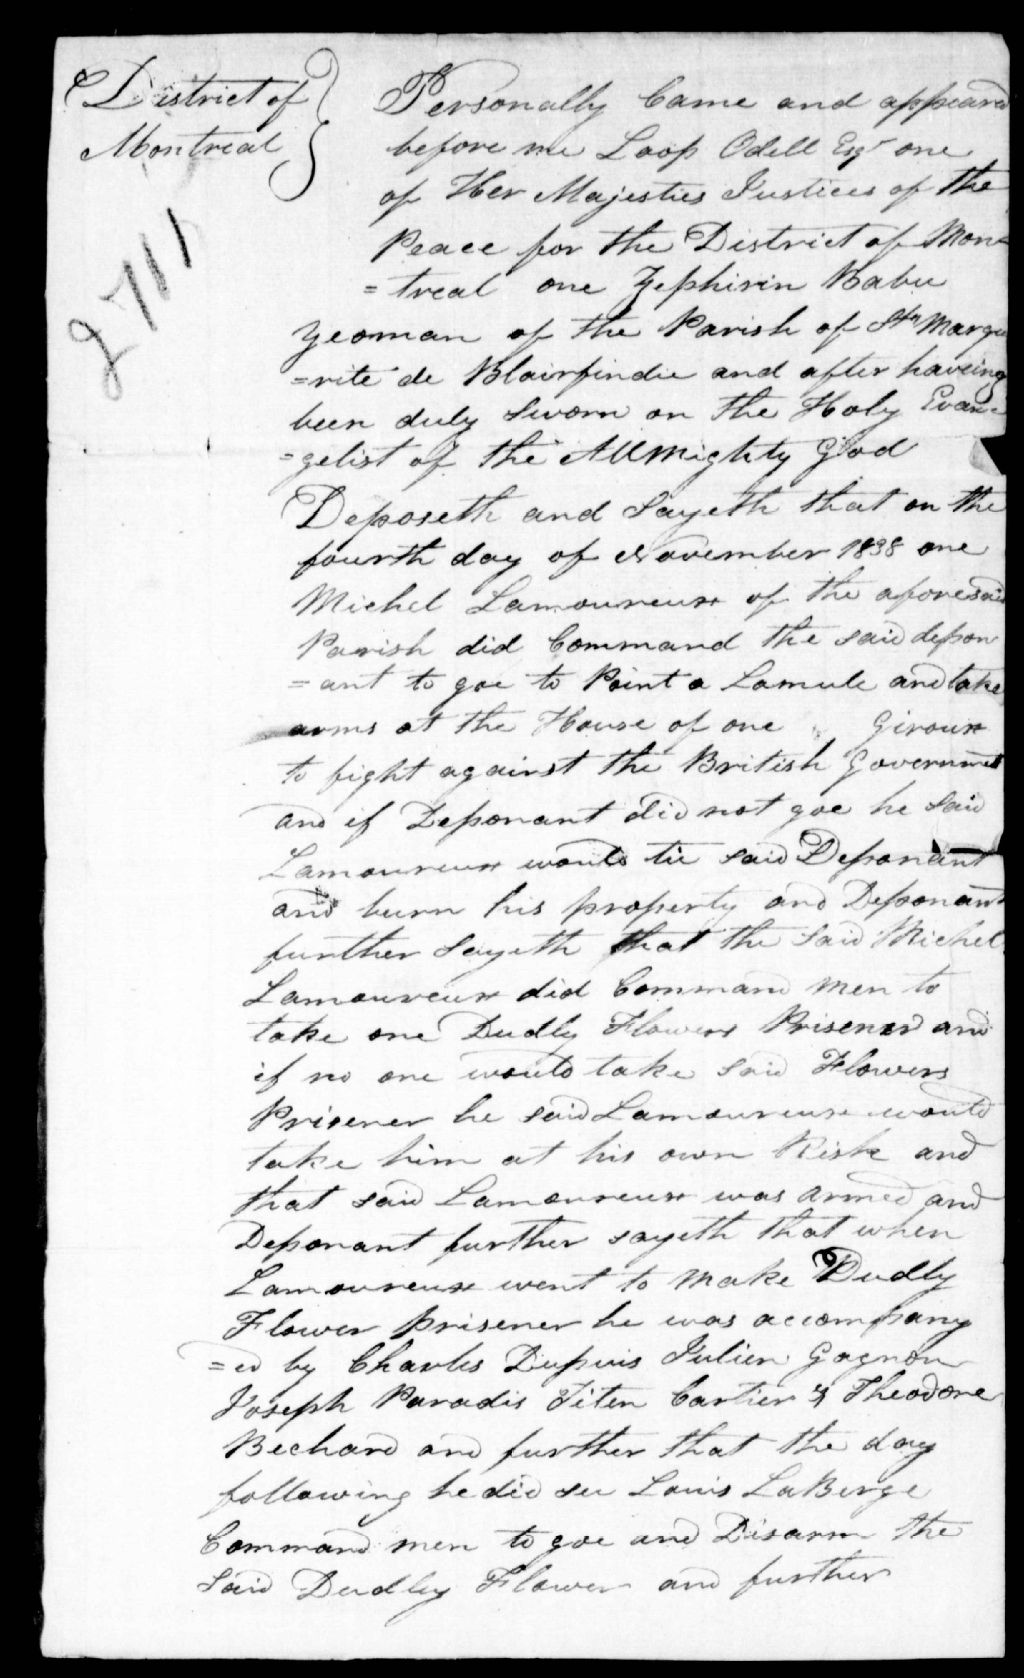 District of
Montreal
2711
Personally Came and appeared
before me Loop Odell Esqr one
of Her Majesties Justices of the
Peace for the District of Mon=
=treal one Zephirin Babu
yeoman of the Parish of Ste Margue
=rite de Blairfindie and after haveing
been duly sworn on the Holy Evan=
=gelist of the Allmighty God
Deposeth and Sayeth that on the
fourth day of November 1838 one
Michel Lamoureux of the aforesaid
Parish did Command the said depon
=ant to goe to Point a Lamule and take
arms at the House of one Giroux
to fight against the British Government
and if Deponant did not goe he Said
Lamoureux would tie said Deponant
and burn his property and Deponant
further Sayeth that the Said Michel
Lamoureux did Command men to
take one Dudly Flowers Prisener and
if no one would take Said Flowers
Prisener he said Lamoureux would
take him at his own Risk and
that said Lamoureux was armed and
Deponant further sayeth that when
Lamoureux went to make Dudly
Flower prisener he was accompany
=ed by Charles Dupuis Julien Gagnon
Joseph Paradis Titen Cartier & Theodore
Bechard and further that the day
following he did see Louis LaBerge
Command men to goe and Disarm the
Said Dudley Flower and further